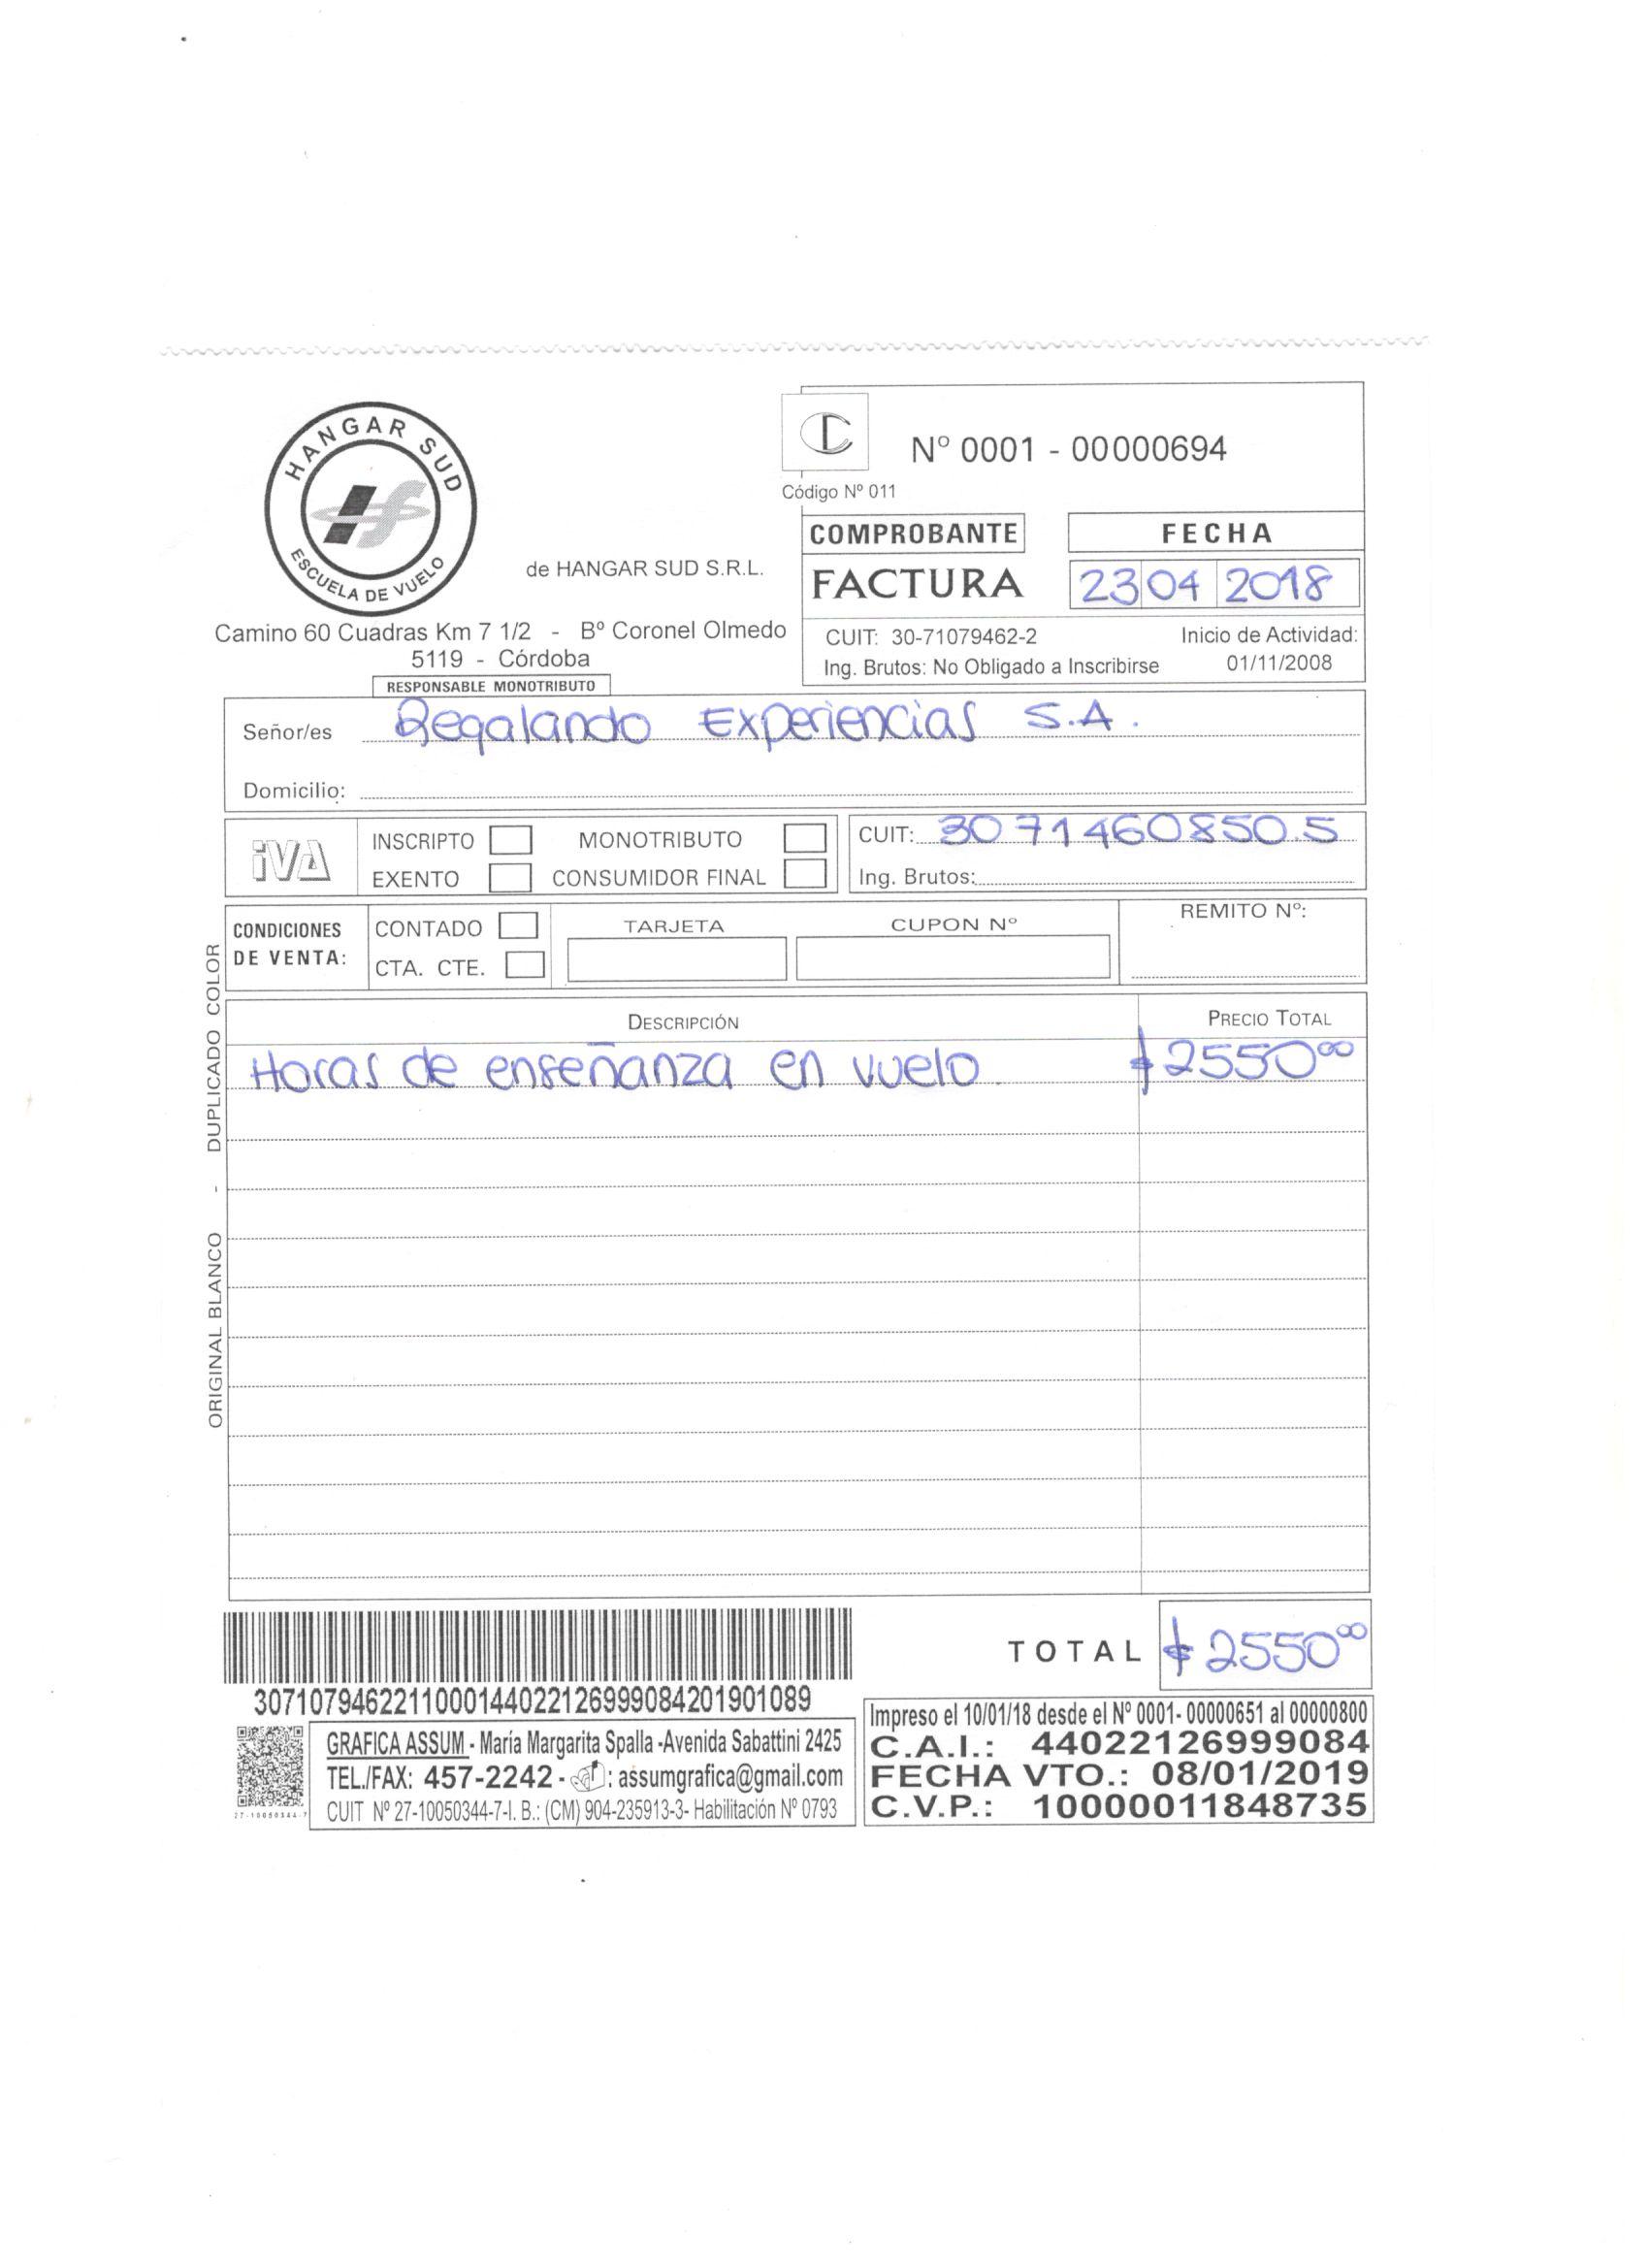 HANGAR SUD
ESCUELA DE VUELO
de HANGAR SUD S.R.L.
Camino 60 Cuadras Km 7 1/2 - Bº Coronel Olmedo
5119 - Córdoba
RESPONSABLE MONOTRIBUTO
C
Código Nº 011
Nº 0001 - 00000694
COMPROBANTE
FACTURA
FECHA
23 04 2018
CUIT: 30-71079462-2
Inicio de Actividad:
Ing. Brutos: No Obligado a Inscribirse
01/11/2008
Señor/es Regalando Experiencias S.A.
Domicilio:
IVA
INSCRIPTO
MONOTRIBUTO
EXENTO
CONSUMIDOR FINAL
CUIT: 30 71460850.5
Ing. Brutos:
CONDICIONES
DE VENTA:
CONTADO
CTA. CTE.
TARJETA
CUPON Nº
REMITO Nº:
DESCRIPCIÓN
PRECIO TOTAL
Horas de enseñanza en vuelo. $2550⁰⁰
ORIGINAL BLANCO - DUPLICADO COLOR
TOTAL $2550⁰⁰
3071079462211000144022126999084201901089
27-10050344-7
GRAFICA ASSUM - María Margarita Spalla -Avenida Sabattini 2425
TEL./FAX: 457-2242 - : assumgrafica@gmail.com
CUIT Nº 27-10050344-7-I. B.: (CM) 904-235913-3- Habilitación Nº 0793
Impreso el 10/01/18 desde el Nº 0001- 00000651 al 00000800
C.A.I.: 44022126999084
FECHA VTO.: 08/01/2019
C.V.P.: 10000011848735